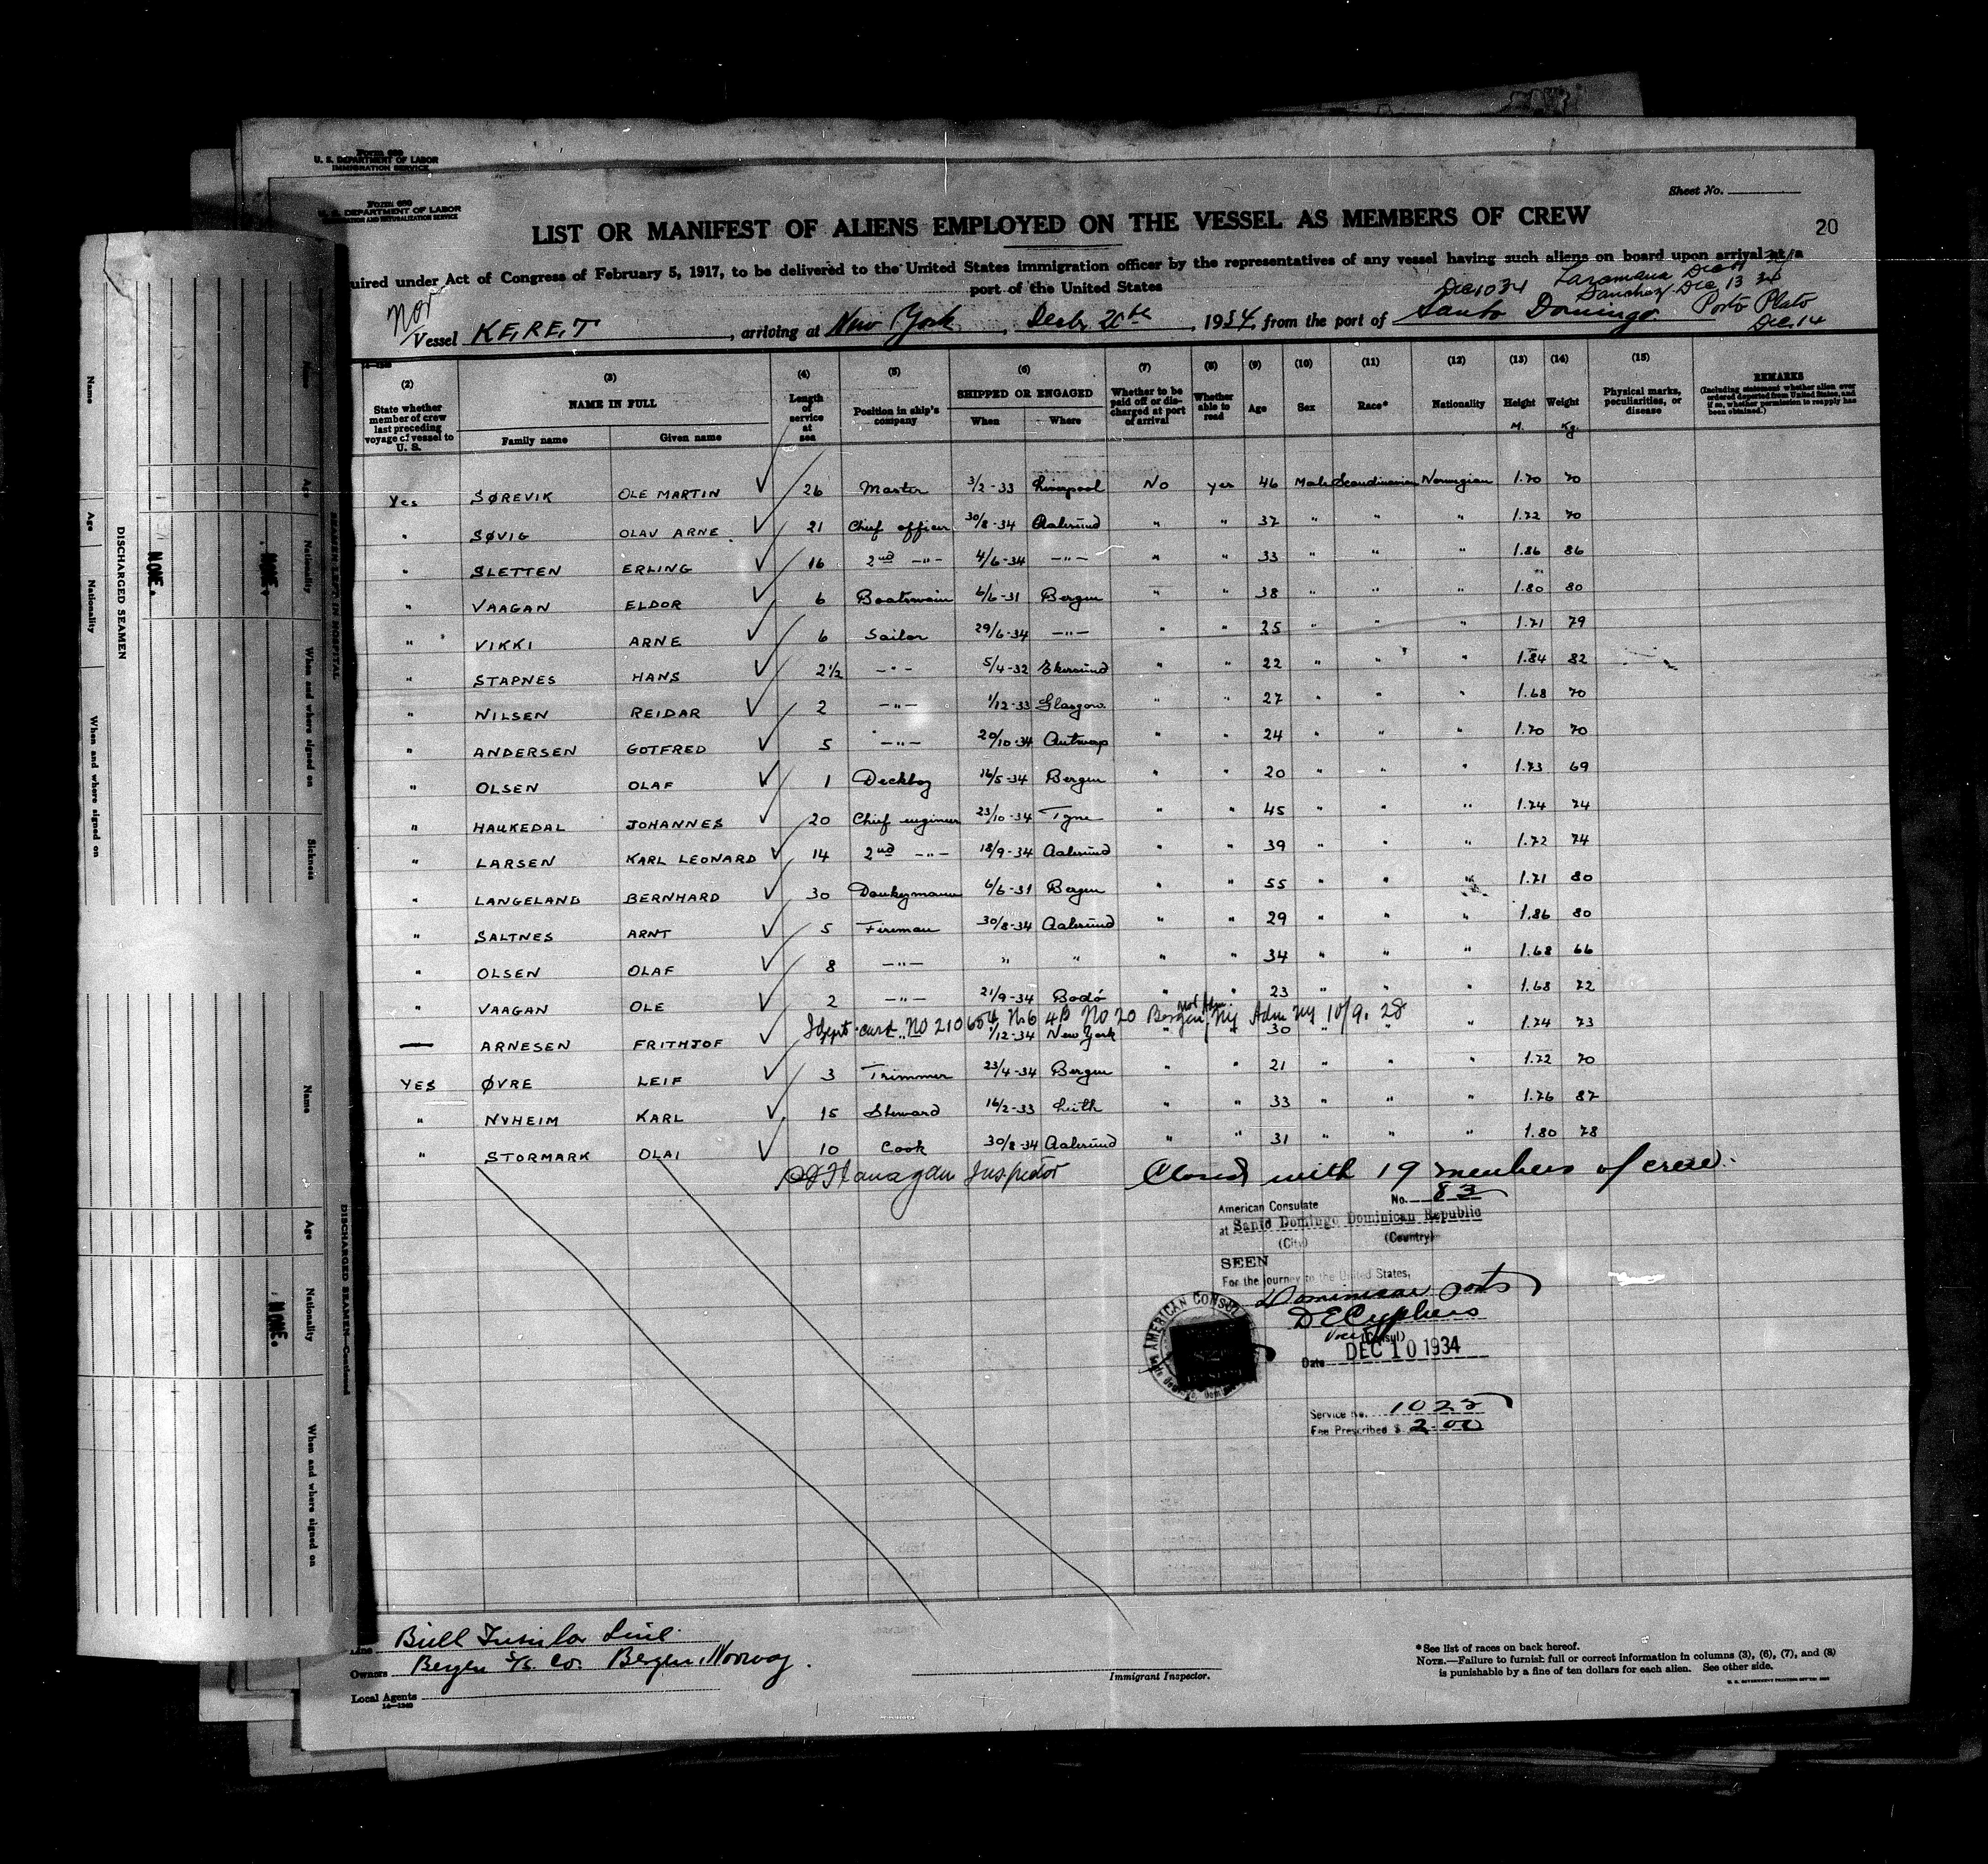 Form 689
U. S. DEPARTMENT OF LABOR
IMMIGRATION SERVICE
Form 689
U. S. DEPARTMENT OF LABOR
IMMIGRATION AND NATURALIZATION SERVICE
Sheet No.
20
LIST OR MANIFEST OF ALIENS EMPLOYED ON THE VESSEL AS MEMBERS OF CREW
uired under Act of Congress of February 5, 1917, to be delivered to the United States immigration officer by the representatives of any vessel having such aliens on board upon arrival at a
port of the United States
Dec 10 34
Sanchez Dec 13 34
Porto Plato
Dec. 14
Nor
Vessel KERET, arriving at New York, Decbr 20th, 1934, from the port of Santo Domingo.
14-1240
(2) (3) (4) (5) (6) (7) (8) (9) (10) (11) (12) (13) (14) (15)
State whether member of crew last preceding voyage of vessel to U. S.
NAME IN FULL
Family name Given name
Length of service at sea
Position in ship's company
SHIPPED OR ENGAGED
When Where
Whether to be paid off or discharged at port of arrival
Whether able to read
Age Sex Race* Nationality Height Weight
M. Kg
Physical marks, peculiarities, or disease
REMARKS
(Including statement whether alien ever ordered deported from United States, and if so, whether permission to reapply has been obtained.)
Yes SØREVIK OLE MARTIN ✓ 26 Master 3/2-33 Liverpool No yes 46 Male Scandinavian Norwegian 1.70 70
" SØVIG OLAV ARNE. ✓ 21 Chief officer 30/8-34 Aalesund " " 37 " " " 1.72 70
" SLETTEN ERLING ✓ 16 2nd -"- 4/6-34 -"- " " 33 " " " 1.86 86
" VAAGAN ELDOR ✓ 6 Boatswain 6/6-31 Bergen " " 38 " " " 1.80 80
" VIKKI ARNE ✓ 6 Sailor 29/6-34 -"- " " 25 " " " 1.71 79
" STAPNES HANS ✓ 2½ -"- 5/4-32 Ekersund " " 22 " " " 1.84 82
" NILSEN REIDAR ✓ 2 -"- 1/12-33 Glasgow " " 27 " " " 1.68 70
" ANDERSEN GOTFRED ✓ 5 -"- 20/10-34 Antwerp " " 24 " " " 1.70 70
" OLSEN OLAF ✓ 1 Deckboy 16/5-34 Bergen " " 20 " " " 1.73 69
" HAUKEDAL JOHANNES ✓ 20 Chief engineer 23/10-34 Tyne " " 45 " " " 1.74 74
" LARSEN KARL LEONARD ✓ 14 2nd -"- 18/9-34 Aalesund " " 39 " " " 1.72 74
" LANGELAND BERNHARD ✓ 30 Donkeymann 6/6-31 Bergen " " 55 " " " 1.71 80
" SALTNES ARNT ✓ 5 Fireman 30/8-34 Aalesund " " 29 " " " 1.86 80
" OLSEN OLAF ✓ 8 -"- " " " " 34 " " " 1.68 66
" VAAGAN OLE ✓ 2 -"- 21/9-34 Bodö " " 23 " " " 1.68 72
Ident card No 210654 No 20 Bergen, Adm NY 10/9. 28
— ARNESEN FRITHJOF ✓ 1/12-34 New York " " 30 " " " 1.74 73
YES ØVRE LEIF ✓ 3 Trimmer 23/4-34 Bergen " " 21 " " " 1.72 70
" NYHEIM KARL ✓ 15 Steward 16/2-33 Leith " " 33 " " " 1.76 87
" STORMARK OLAI ✓ 10 Cook 30/8-34 Aalesund " " 31 " " " 1.80 78
Flanagan Inspector
Closed with 19 members of crew.
American Consulate No. 83
at Santo Domingo Dominican Republic
(City) (Country)
SEEN
For the journey to the United States,
Dominican ports
D E Cyphers
Vice (Consul)
Date DEC 10 1934
AMERICAN CONSUL
Service No. 1025
Fee Prescribed $ 2.00
Line Bull Insular Line
Owners Bergen S/S. Co. Bergen, Norway.
Local Agents
14-1240
Immigrant Inspector.
*See list of races on back hereof.
NOTE.—Failure to furnish full or correct information in columns (3), (6), (7), and (8)
is punishable by a fine of ten dollars for each alien. See other side.
Name
Age
Nationality
When and where signed on
DISCHARGED SEAMEN
NONE.
NONE.
Name
Age
Nationality
When and where signed on
Sickness
SEAMEN LEFT IN HOSPITAL
Name
Age
Nationality
When and where signed on
NONE.
DISCHARGED SEAMEN—Continued